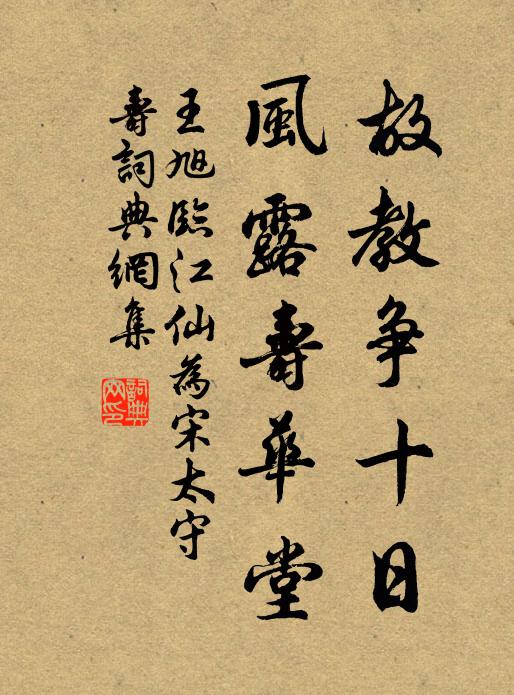 故教争十日
風露壽華堂
王旭臨江仙為宋太守
壽詞典網集
詞典網印